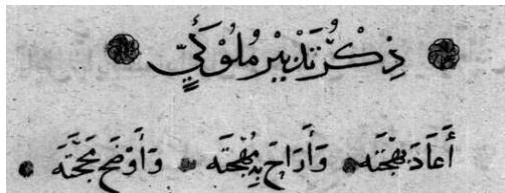 ذِكْرُ تَدْبِيْرٍ مُلُوْكِيٍّ
أَعَادَ بَهْجَتَه وَأَرَاحَ بِهِ مُهْجَتَه وَأَوْضَحَ مَحَجَّتَه